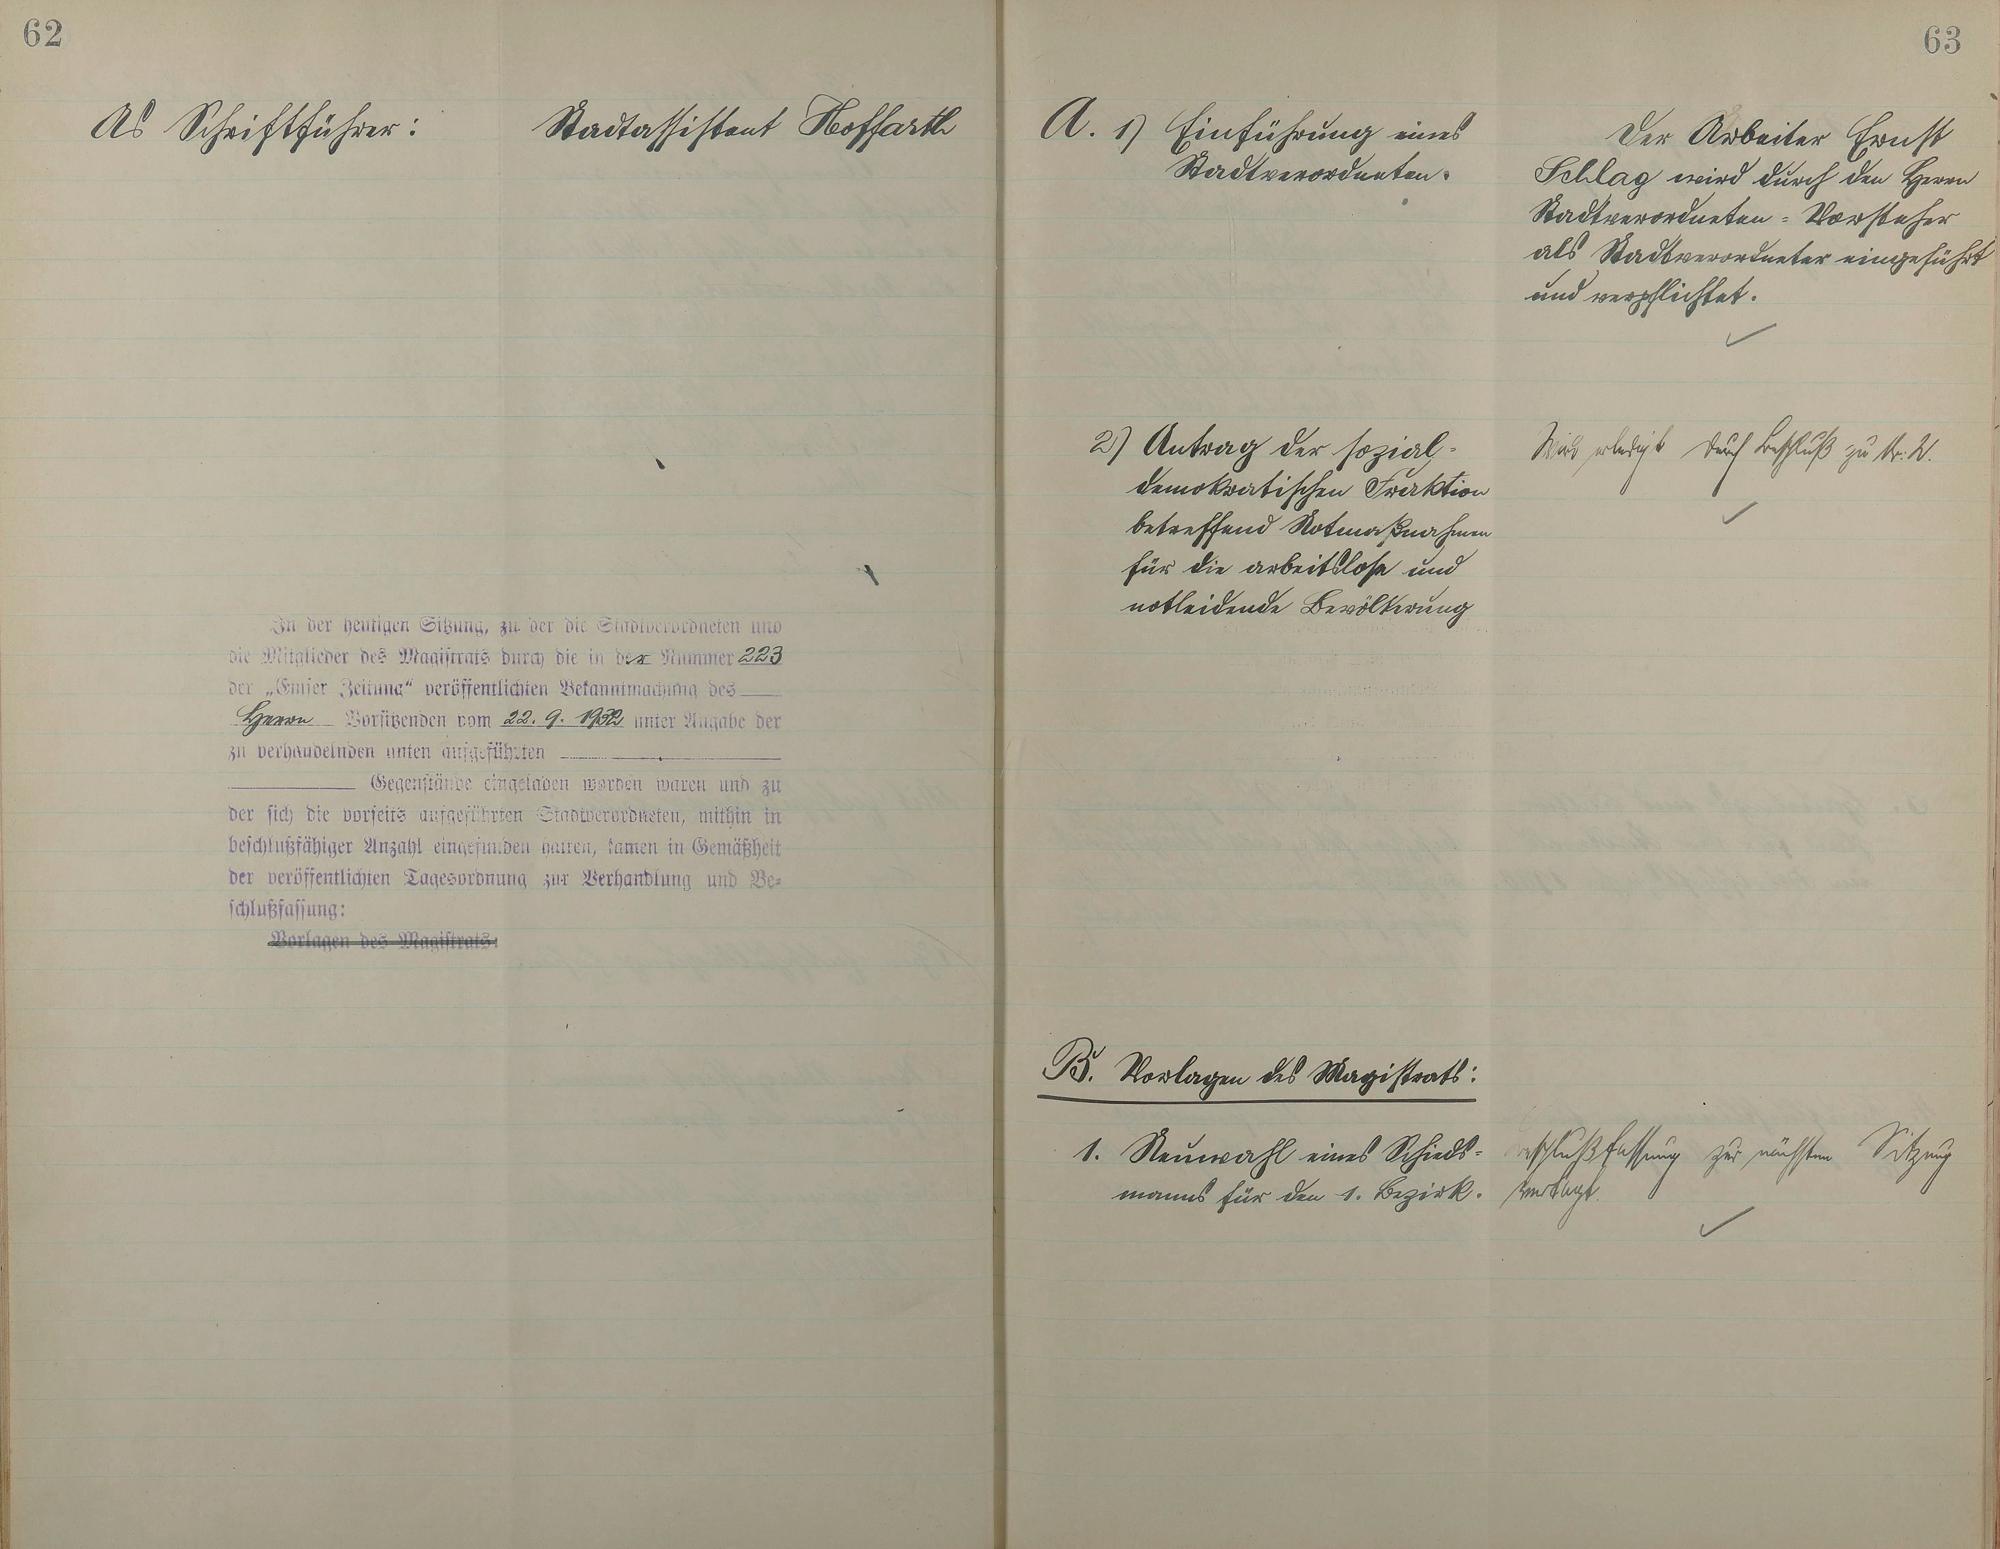 62
As Schriftführer: Stadtassistent Hoffarth
In der heutigen Sitzung, zu der die Stadtverordneten und
die Mitglieder des Magistrats durch die in der Nummer 223
der „Emser Zeitung“ veröffentlichten Bekanntmachung des
Herrn Vorsitzenden vom 22. 9. 1932 unter Angabe der
zu verhandelnden unten aufgeführten
Gegenstände eingeladen worden waren und zu
der sich die vorseits aufgeführten Stadtverordneten, mithin in
beschlußfähiger Anzahl eingefunden hatten, kamen in Gemäßheit
der veröffentlichten Tagesordnung zur Verhandlung und Be-
schlußfassung:
Vorlagen des Magistrats:
63
A. 1) Einführung eines
Stadtverordneten.
Der Arbeiter Ernst
Schlag wird durch den Herrn
Stadtverordneten-Vorsteher
als Stadtverordneter eingeführt
und verpflichtet.
2) Antrag der sozial-
demokratischen Fraktion
betreffend Notmaßnahmen
für die arbeitslose und
notleidende Bevölkerung
Wird erledigt durch Beschluß zu Nr:
B. Vorlagen des Magistrats:
1. Neuwahl eines Schieds-
manns für den 1. Bezirk.
Beschlußfassung zur nächsten Sitzung
vertagt.